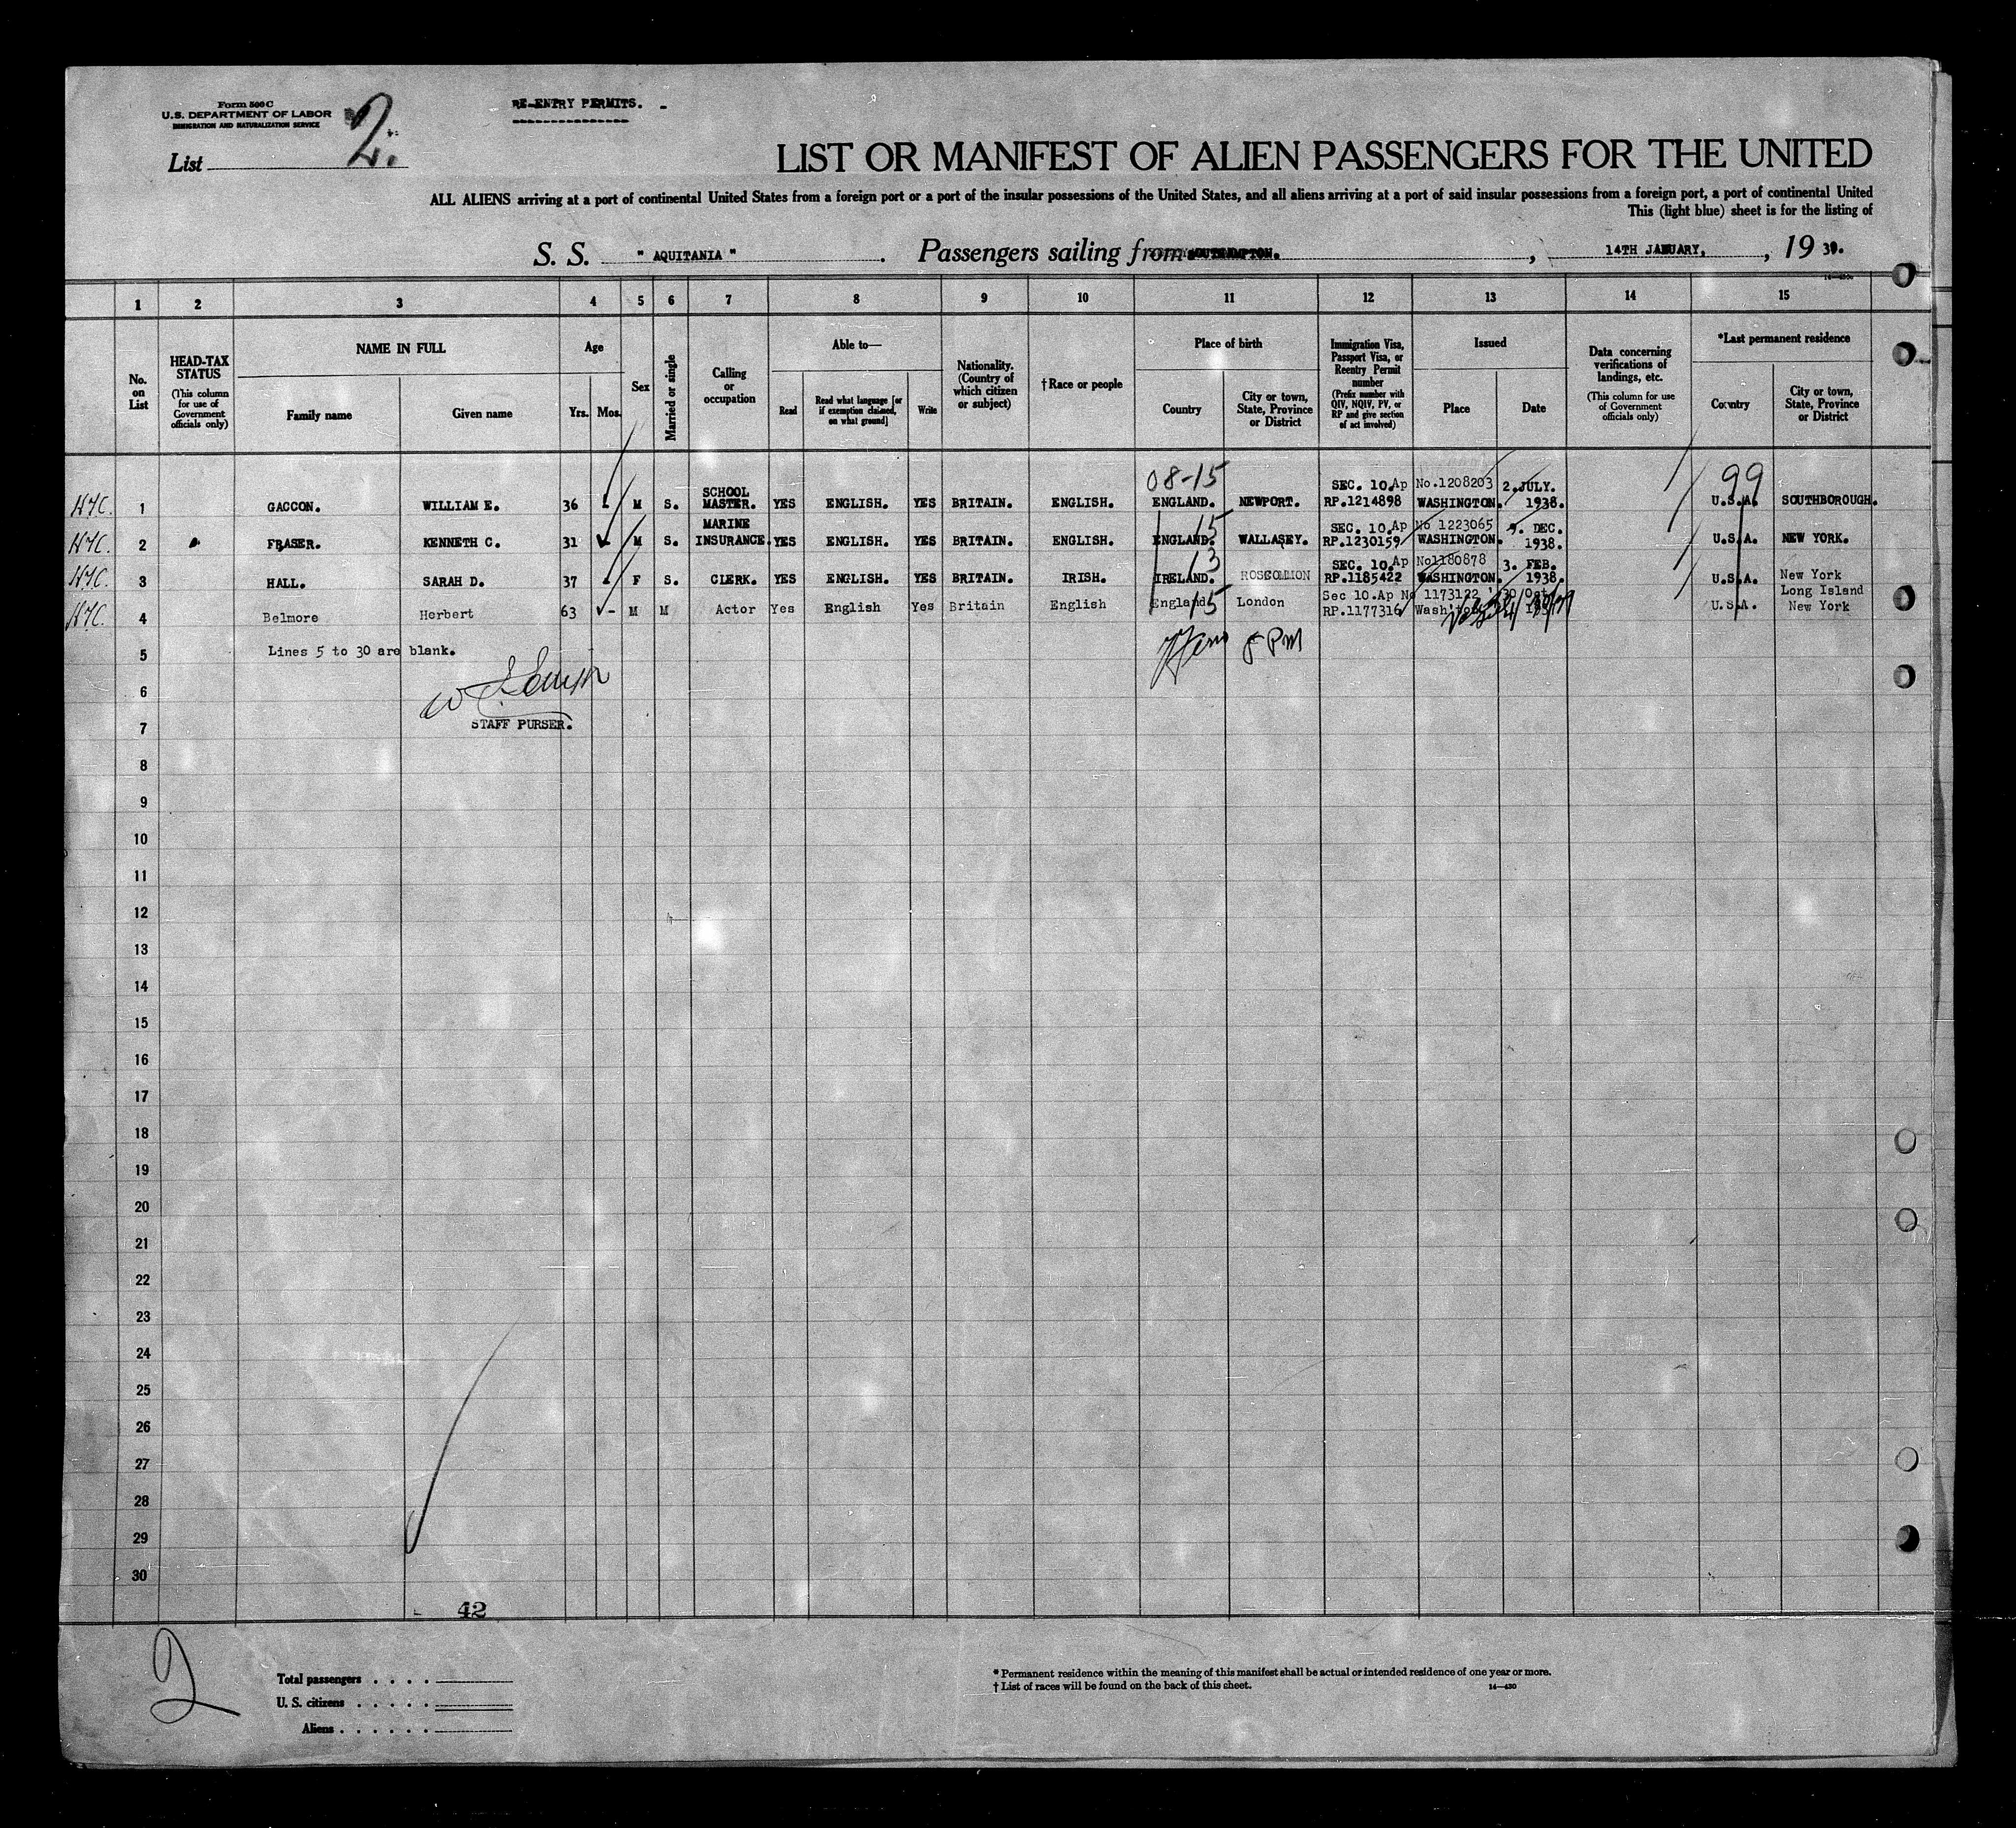 Form 500 C
U.S. DEPARTMENT OF LABOR
IMMIGRATION AND NATURALIZATION SERVICE
RE-ENTRY PERMITS. -
List 2.
LIST OR MANIFEST OF ALIEN PASSENGERS FOR THE UNITED
ALL ALIENS arriving at a port of continental United States from a foreign port or a port of the insular possessions of the United States, and all aliens arriving at a port of said insular possessions from a foreign port, a port of continental United
This (light blue) sheet is for the listing of
S. S. " AQUITANIA " . Passengers sailing from SOUTHAMPTON. , 14TH JANUARY, , 19 39.
1 2 3 4 5 6 7 8 9 10 11 12 13 14 15
No. on List
HEAD-TAX STATUS (This column for use of Government officials only)
NAME IN FULL
Family name Given name
Age
Yrs. Mos.
Sex
Married or single
Calling or occupation
Able to—
Read
Read what language [or if exemption claimed, on what ground]
Write
Nationality. (Country of which citizen or subject)
†Race or people
Place of birth
Country
City or town, State, Province or District
Immigration Visa, Passport Visa, or Reentry Permit number (Prefix number with QIV, NQIV, PV, or RP and give section of act involved)
Issued
Place Date
Data concerning verifications of landings, etc. (This column for use of Government officials only)
*Last permanent residence
Country
City or town, State, Province or District
08-15 99
SCHOOL SEC. 10. Ap No.1208203 2.JULY.
1 GACCON. WILLIAM E. 36 - M S. MASTER. YES ENGLISH. YES BRITAIN. ENGLISH. ENGLAND. NEWPORT. RP.1214898 WASHINGTON. 1938. U.S.A. SOUTHBOROUGH.
MARINE 15 SEC. 10. Ap No 1223065 9. DEC.
2 FRASER. KENNETH C. 31 M S. INSURANCE. YES ENGLISH. YES BRITAIN. ENGLISH. ENGLAND. WALLASEY. RP.1230159 WASHINGTON. 1938. U.S.A. NEW YORK.
13 SEC. 10. Ap No1180878 3. FEB.
3 HALL. SARAH D. 37 - F S. CLERK. YES ENGLISH. YES BRITAIN. IRISH. IRELAND. ROSCOMMON RP.1185422 WASHINGTON. 1938. U.S.A. New York
15 Sec 10. Ap No 1173122 Long Island
4 Belmore Herbert 63 - M M Actor Yes English Yes Britain English England London RP.1177316 U.S.A. New York
5 Lines 5 to 30 are blank.
8 PM
6
STAFF PURSER.
7
8
9
10
11
12
13
14
15
16
17
18
19
20
21
22
23
24
25
26
27
28
29
30
42
2
Total passengers . . . .
U. S. citizens . . . . .
Aliens . . . . . .
* Permanent residence within the meaning of this manifest shall be actual or intended residence of one year or more.
† List of races will be found on the back of this sheet. 14—430